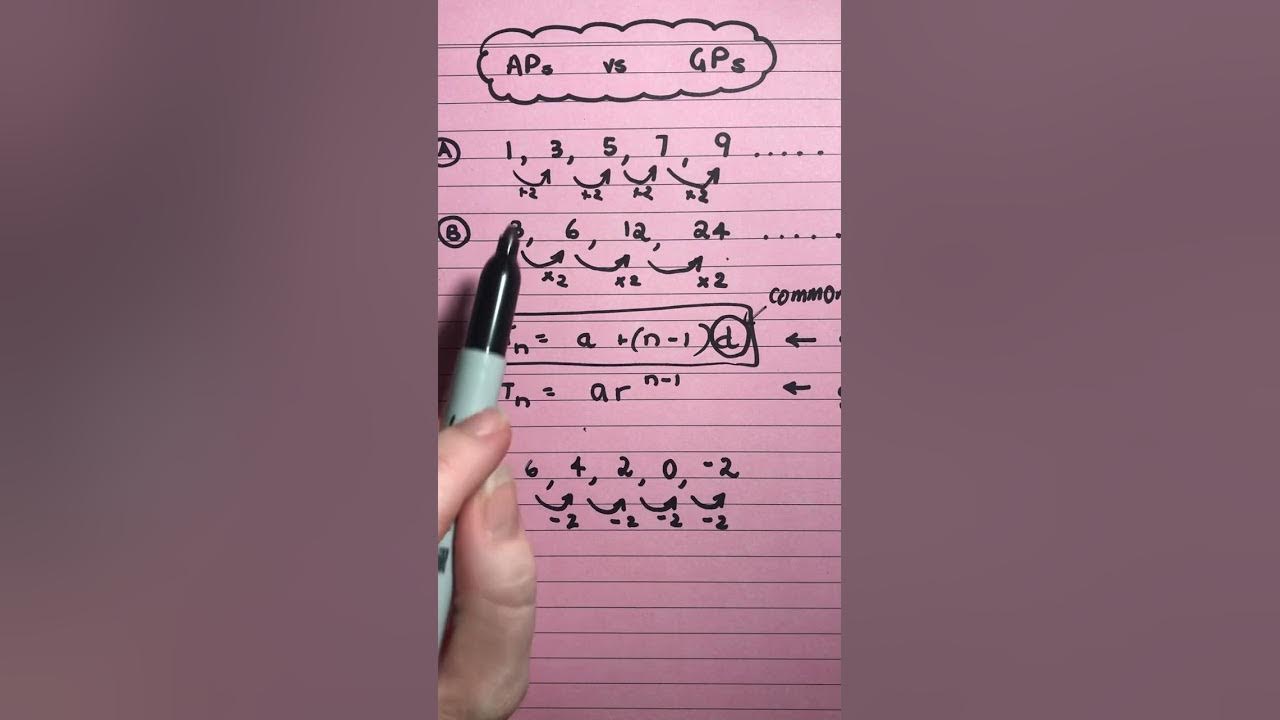 APs vs GPs
A 1, 3, 5, 7, 9 .....
+2 +2 +2 +2
B 3, 6, 12, 24 .....
×2 ×2 ×2
common
Tn = a + (n-1) d ←
Tn = ar^(n-1) ←
6, 4, 2, 0, -2
-2 -2 -2 -2